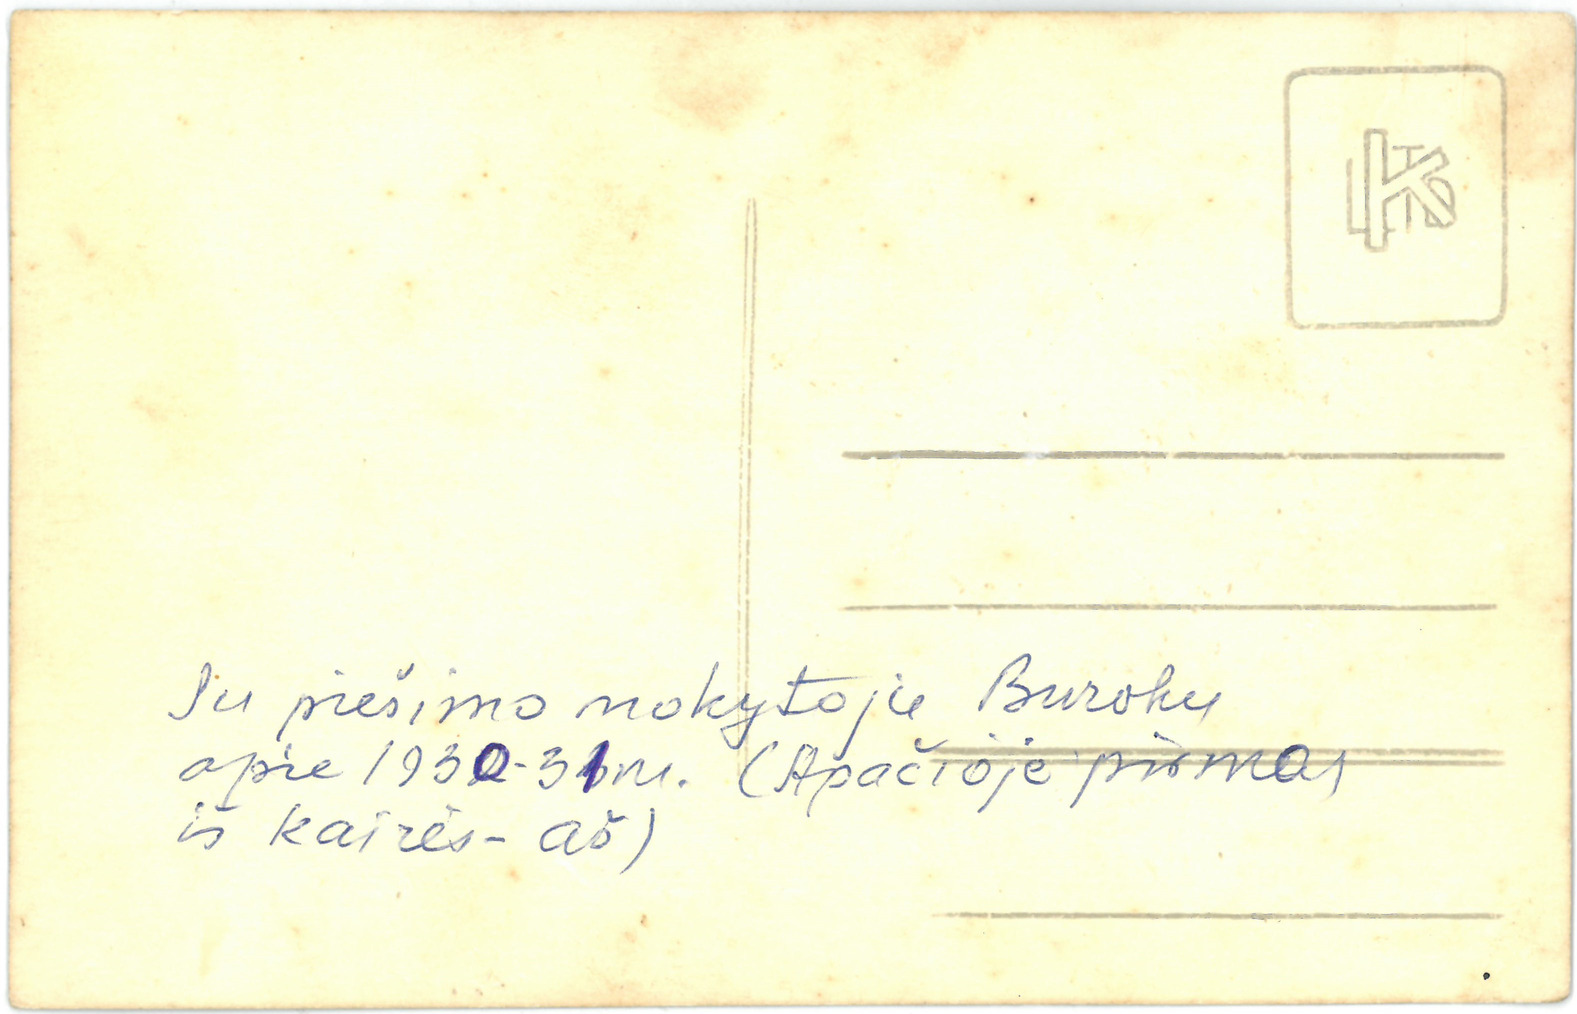 Su piešimo mokytoju Buroku
apie 1930-31 m. (Apačioje pirmas
iš kairės - aš)